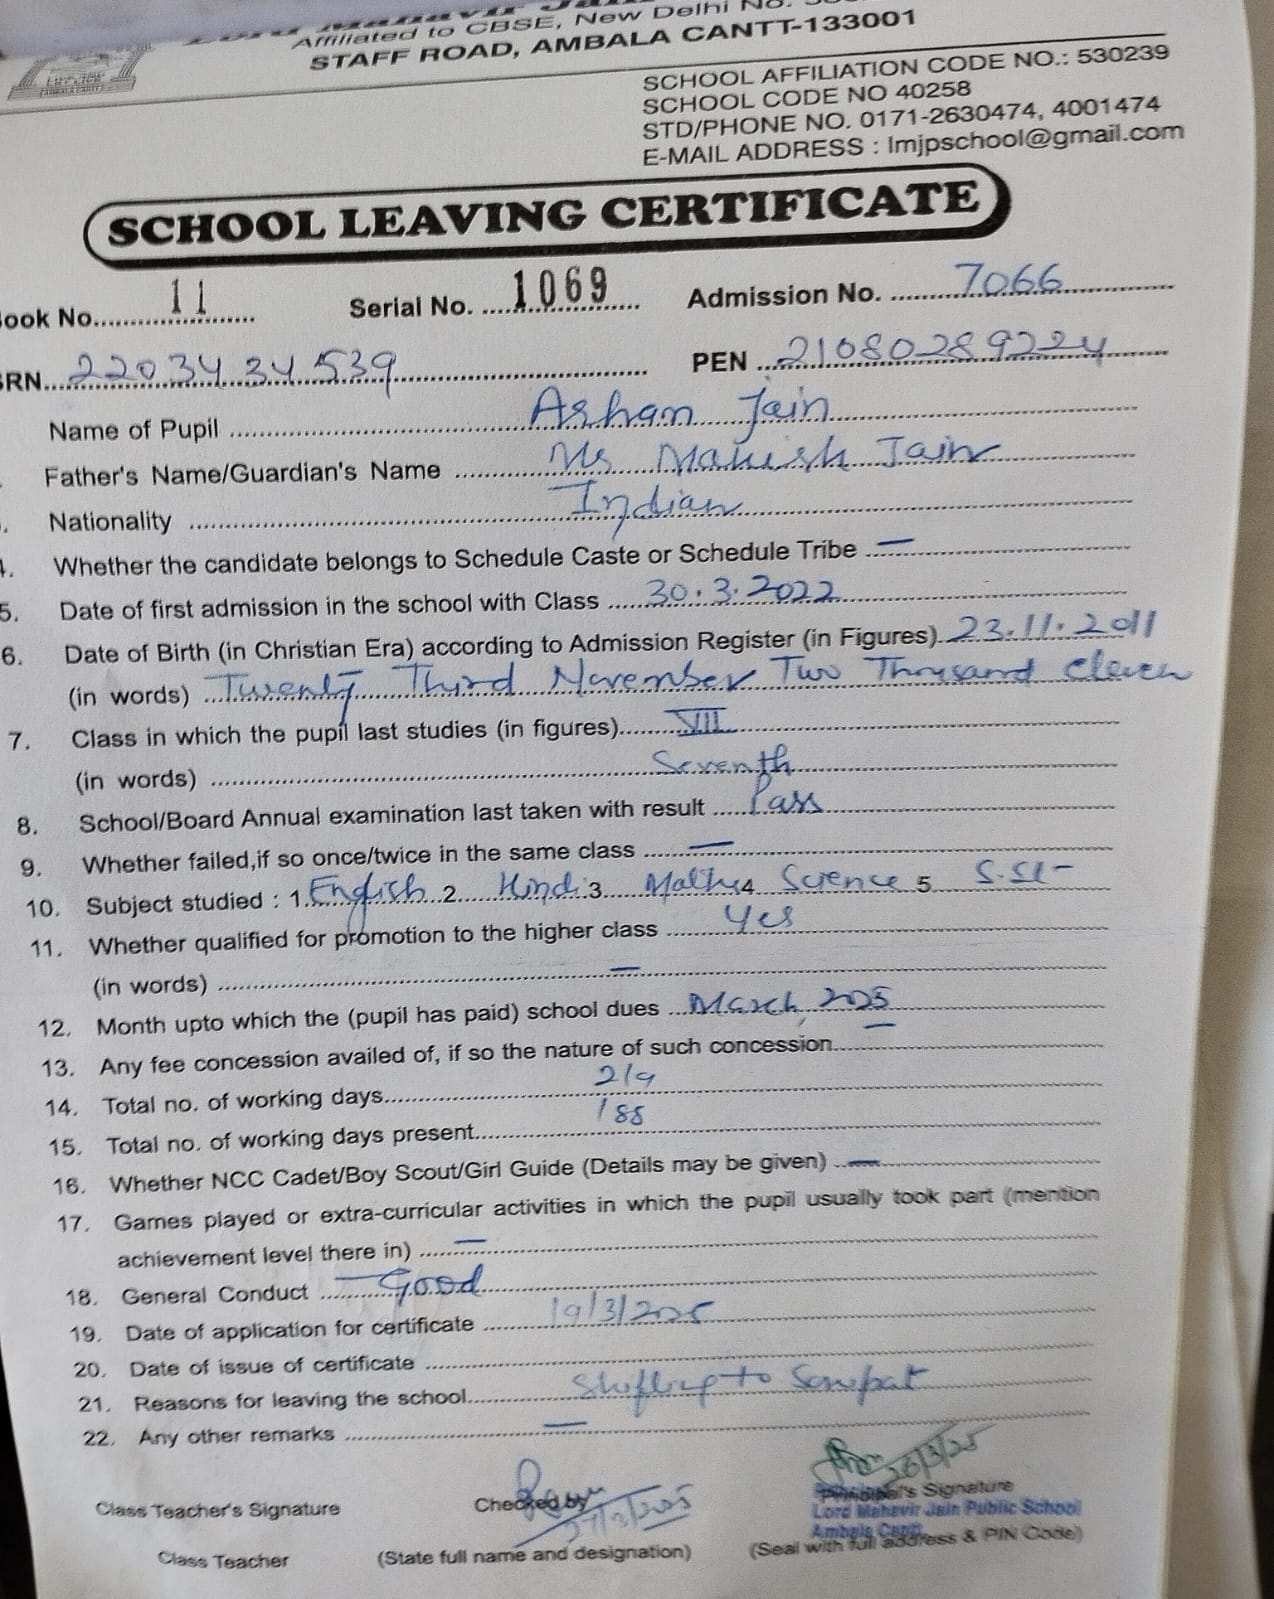 Affiliated to CBSE, New Delhi No.
STAFF ROAD, AMBALA CANTT-133001
SCHOOL AFFILIATION CODE NO.: 530239
SCHOOL CODE NO 40258
STD/PHONE NO. 0171-2630474, 4001474
E-MAIL ADDRESS : lmjpschool@gmail.com
SCHOOL LEAVING CERTIFICATE
ook No. 11 Serial No. 1069 Admission No. 7066
SRN. 2203434539 PEN 21080289224
Name of Pupil Arham Jain
Father's Name/Guardian's Name Mr Manish Jain
Nationality Indian
4. Whether the candidate belongs to Schedule Caste or Schedule Tribe —
5. Date of first admission in the school with Class 30.3.2022
6. Date of Birth (in Christian Era) according to Admission Register (in Figures). 23.11.2011
(in words) Twenty Third November Two Thousand eleven
7. Class in which the pupil last studies (in figures) VII
(in words) Seventh
8. School/Board Annual examination last taken with result Pass
9. Whether failed,if so once/twice in the same class —
10. Subject studied : 1. English 2. Hindi 3. Maths 4 Science 5 S.St-
11. Whether qualified for promotion to the higher class Yes
(in words) —
12. Month upto which the (pupil has paid) school dues March, 2025
13. Any fee concession availed of, if so the nature of such concession —
14. Total no. of working days 219
15. Total no. of working days present 188
16. Whether NCC Cadet/Boy Scout/Girl Guide (Details may be given) —
17. Games played or extra-curricular activities in which the pupil usually took part (mention
achievement level there in) —
18. General Conduct Good
19. Date of application for certificate 19/3/2025
20. Date of issue of certificate
21. Reasons for leaving the school Shifting to Sonipat
22. Any other remarks —
26/3/25
Class Teacher's Signature Checked by Principal's Signature
Lord Mahavir Jain Public School
Ambala Cantt.
Class Teacher (State full name and designation) (Seal with full address & PIN Code)